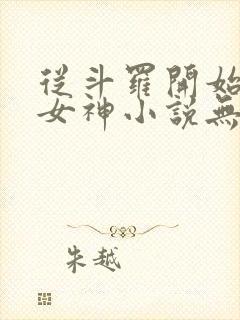 從斗羅開始
女神小說無
朱越